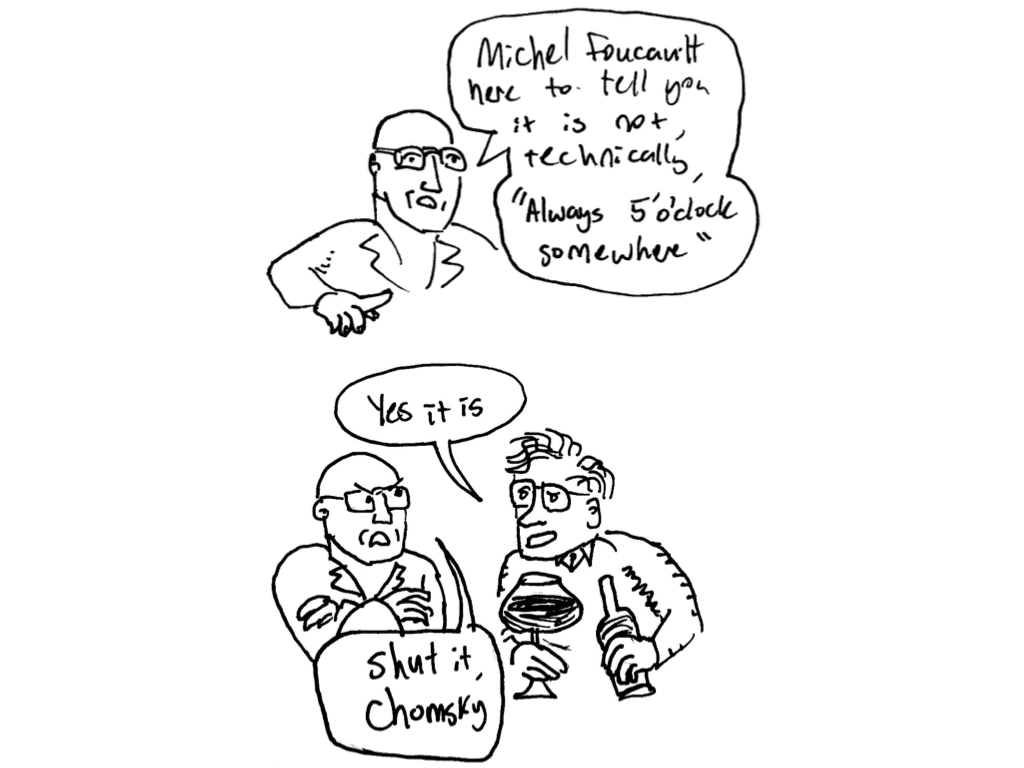 Michel Foucault
here to tell you
it is not,
technically,
"Always 5 o'clock
somewhere"
Yes it is
shut it,
Chomsky